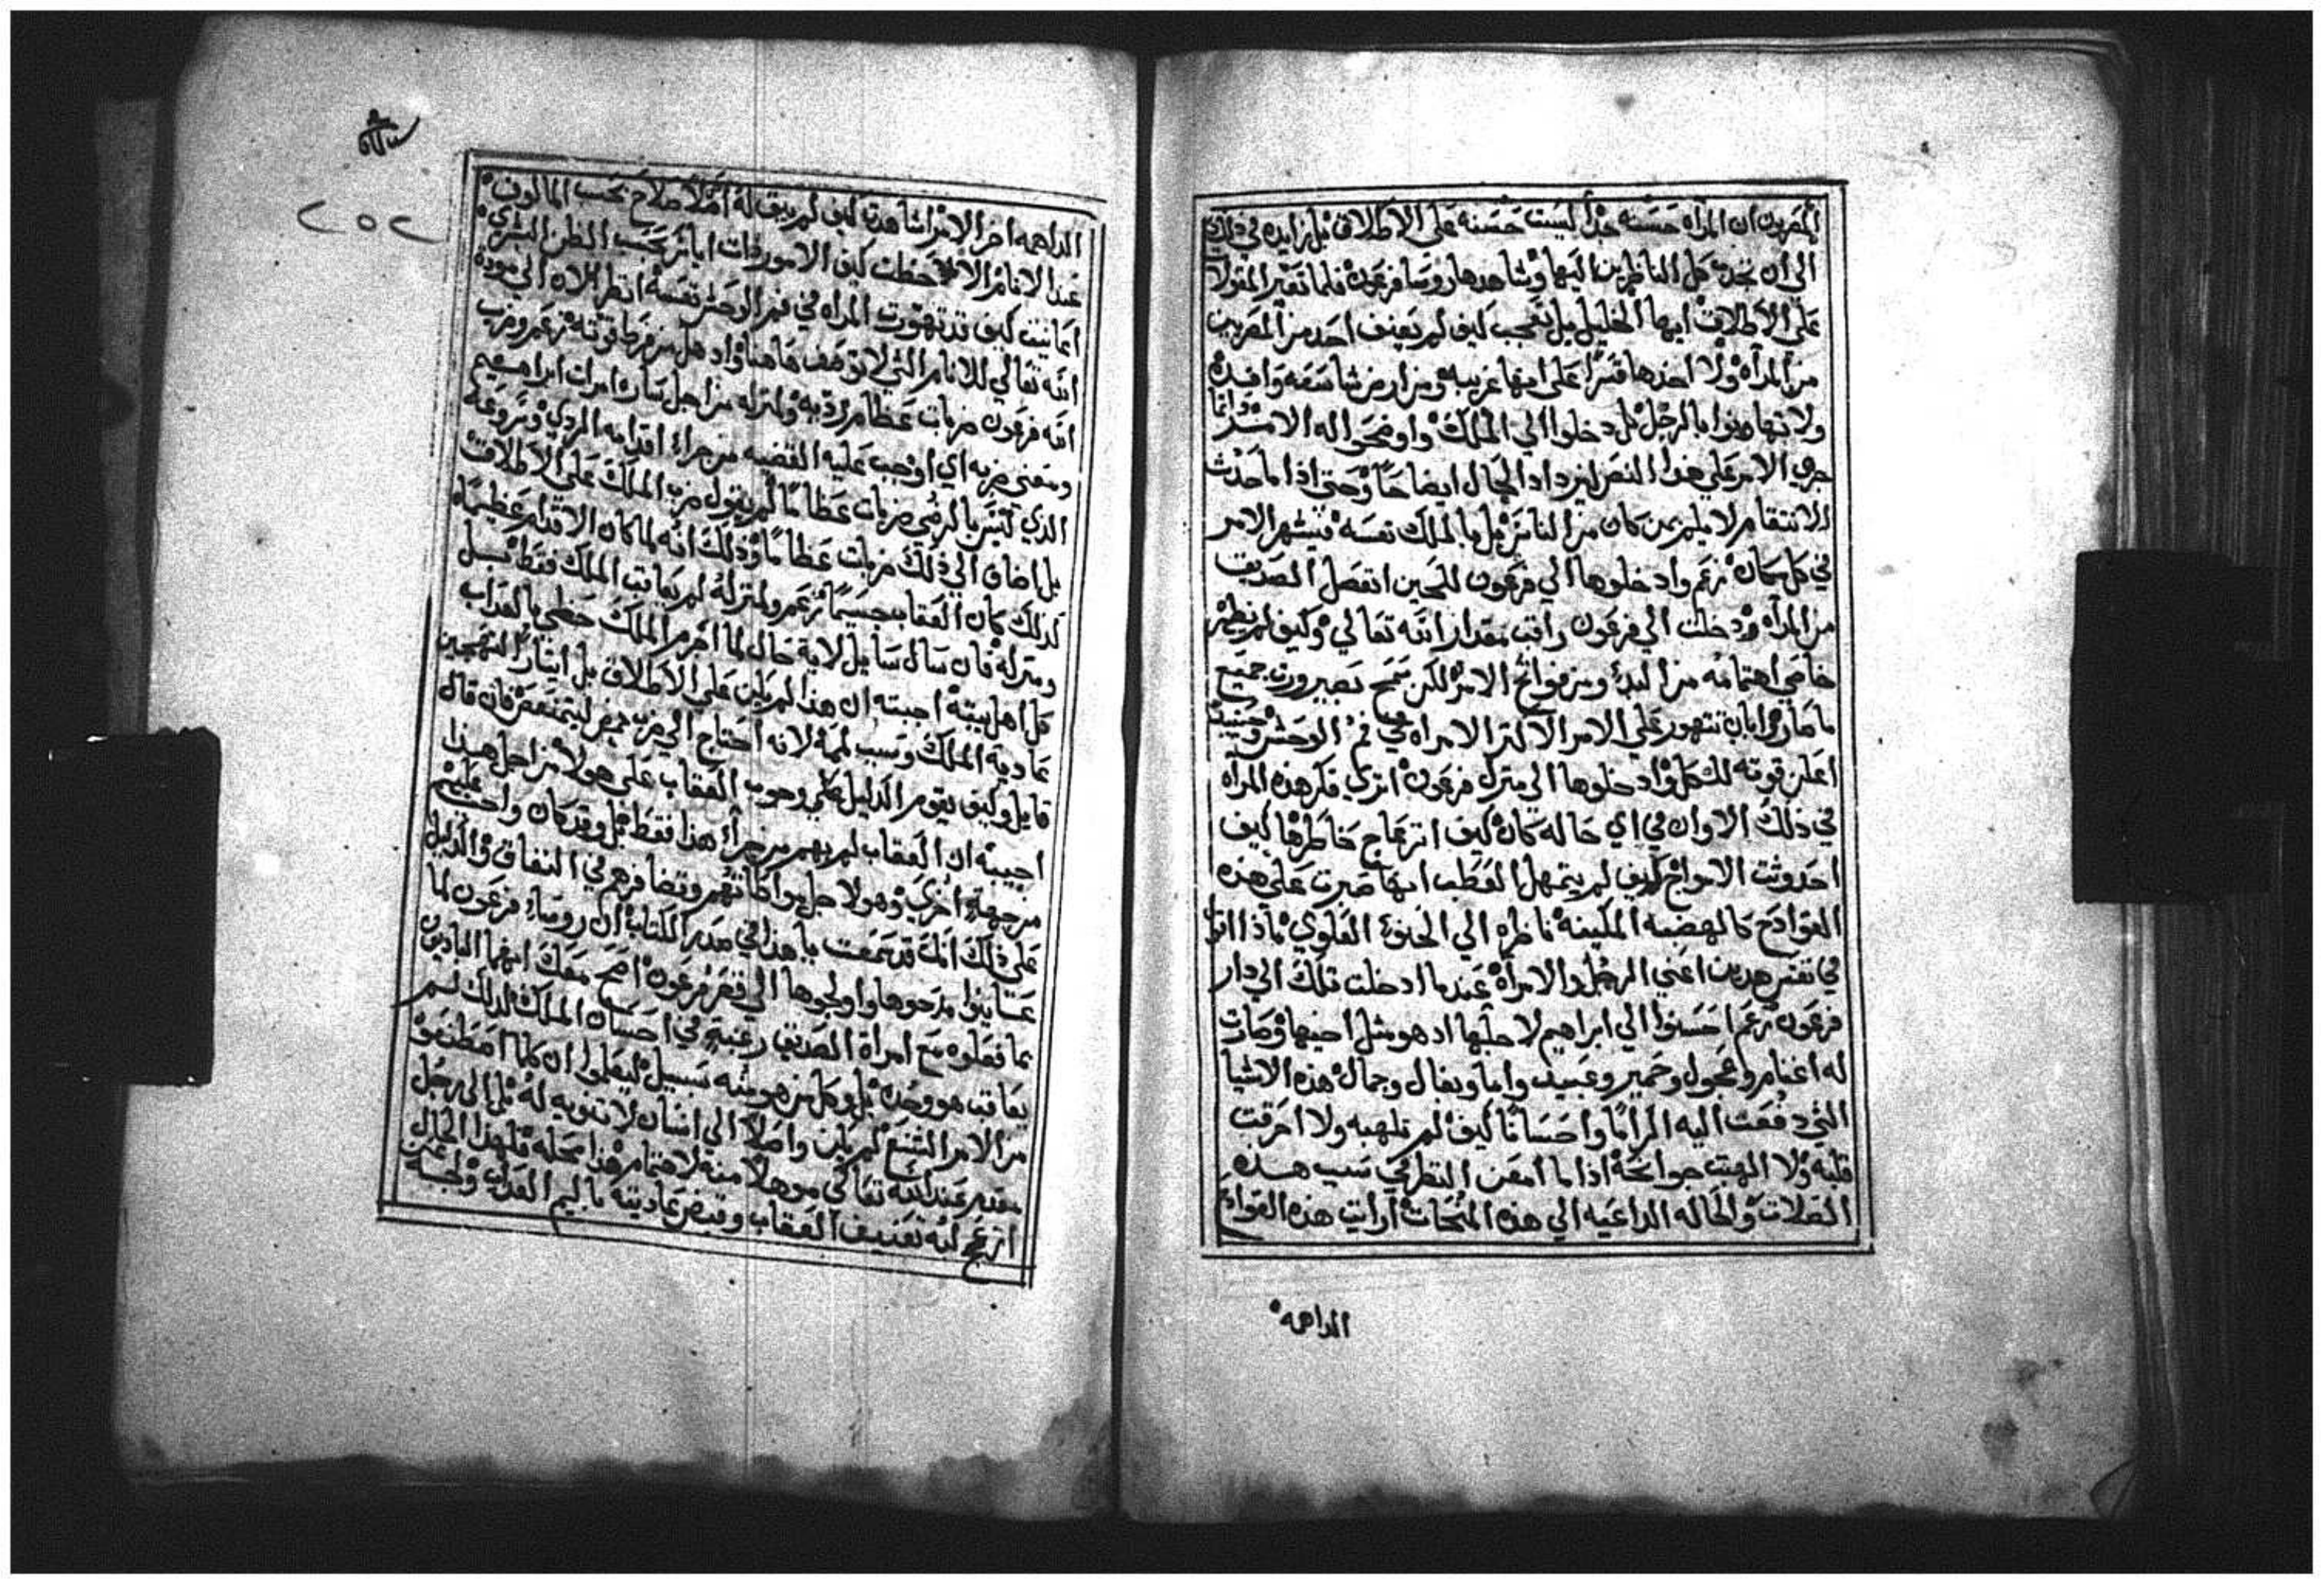 المصريون ان المراه حسنه جداً ليست حسنه على الاطلاق بل زايده في ذلك
الى ان تجذب كل الناظرين اليها وشاهدها روسا فرعون فلما تعبر المقولا
على الاطلاق ايها الخليل بل تعجب كيف لم يعنف احد من المصريين
من المرآه ولا اخذها قسراً على انها غريبه ومن ارض شاسعه وافده
ولا تهاونوا بالرجل بل دخلوا الي الملك واوضحوا له الامر وانما
جري الامر على هذا النص ليزداد الحال ايضاحاً وحتى اذا ما حدث
الانتقام لا يلم بمن كان من الناس بل بالملك نفسه فيشهر الامر
في كل مكان زعم وادخلوها الي فرعون للحين انفصل الصديق
من المرآه ودخلت الي فرعون راقب مقدار انته تعالي وكيف لم يظهر
خاصي اهتمامه من البدء ومن فواتح الامر لكن سمح بصيرورت جميع
ما صار وابان تتهور على الامر الا لترا الامراه في فم الوحش وحينيذ
اعلن قوته للكل وادخلوها الى منزل فرعون اتري فكر هذه المرآه
في ذلك الاوان في اي حاله كان كيف انزعاج خاطرها كيف
احدوثت الامواج كيف لم يتمهل العطب انها صبرت على هذه
الفوادح كالهضبه المكينه ناظره الي الحنوة العلوي ماذا اقول
في نفس هدين اعني الرجل والامرآه عندما ادخلت تلك الى دار
فرعون زعم احسنوا الي ابراهيم لاجلها اد هو مثل اخيها وصارت
له اغنام وعجول وحمير وعبيد واما وبغال وجمال هذه الاشيا
التي دفعت اليه اكراماً واحساناً كيف لم تلهبه ولا احرقت
قلبه ولا الهبت جوانحه اذا ما امعن النظر في سبب هذه
الصلات والحاله الداعيه الي هذه المنحات ارايت هذه الفواد
الداهمه
٢٥٢
الداهمه اخر الامر شاهدت كيف لم يبق له اصلاً صلاح بحسب المالوف
عند الانام الاحظت كيف الامور ذات اياس بحسب الظن البشري
اعاينت كيف قد تهورت المراه في فم الوحش نفسه انظر الان الي مودة
انته تعالي للانام التي لا توصف هاهنا واد هل من فرط قوته زعم وضرب
انته فرعون ضربات عظام ردية ولمنزله من اجل ساره امرات ابراهيم
ومعني ضربه اي اوجب عليه القضيه من جراء اقدامه الردي وشروعه
الذي لتيسر بالرضي ضربات عظاماً لم يقول ضرب الملك على الاطلاق
بل اضاف الي ذلك ضربات عظاماً وذلك انه لما كان الاقدام عظيماً
لذلك كان العقاب جسيماً زعم ولمنزله لم يعاقب الملك فقط بل
ومنزله فان سال سايل لاية حال لما اجرم الملك حظي بالعذاب
كل اهل بيته اجبته ان هذا لم يكن على الاطلاق بل ايثار التهجين
عادية الملك وسبب لمه لانه احتاج الي ضرب ممض ليتمنعض فان قال
قايل وكيف يقوم الدليل على وجوب العقاب على هولا من اجل هذا
اجيبه ان العقاب لم يهم من جراء هذا فقط بل وقد كان واجب عليهم
من جهة اخري وهولا جلبوا كاتهم وتضافرهم في النفاق والدليل
على ذلك انك قد سمعت باهذا في صدر الكتاب ان روساء فرعون لما
عاينوا مدحوها واولجوها الي قصر فرعون اصح معك انهما البادين
بما فعلوه مع امراة الصديق رغبة في احسان الملك لدلك لم
يعاقب هو وحده بل وكل من هو منه بسبيل ليعلموا ان كلما اصطنعو
من الامر الشنع لم يكن واصلاً الي انسان لا تنويه له بل الى رجل
مقدم عند انته تعالي موهلا منه لاهتمام هذا محله فلهذا الحال
ازعج لبه تعنيف العقاب وقبض عاديته باليم العذاب ولجمه عن